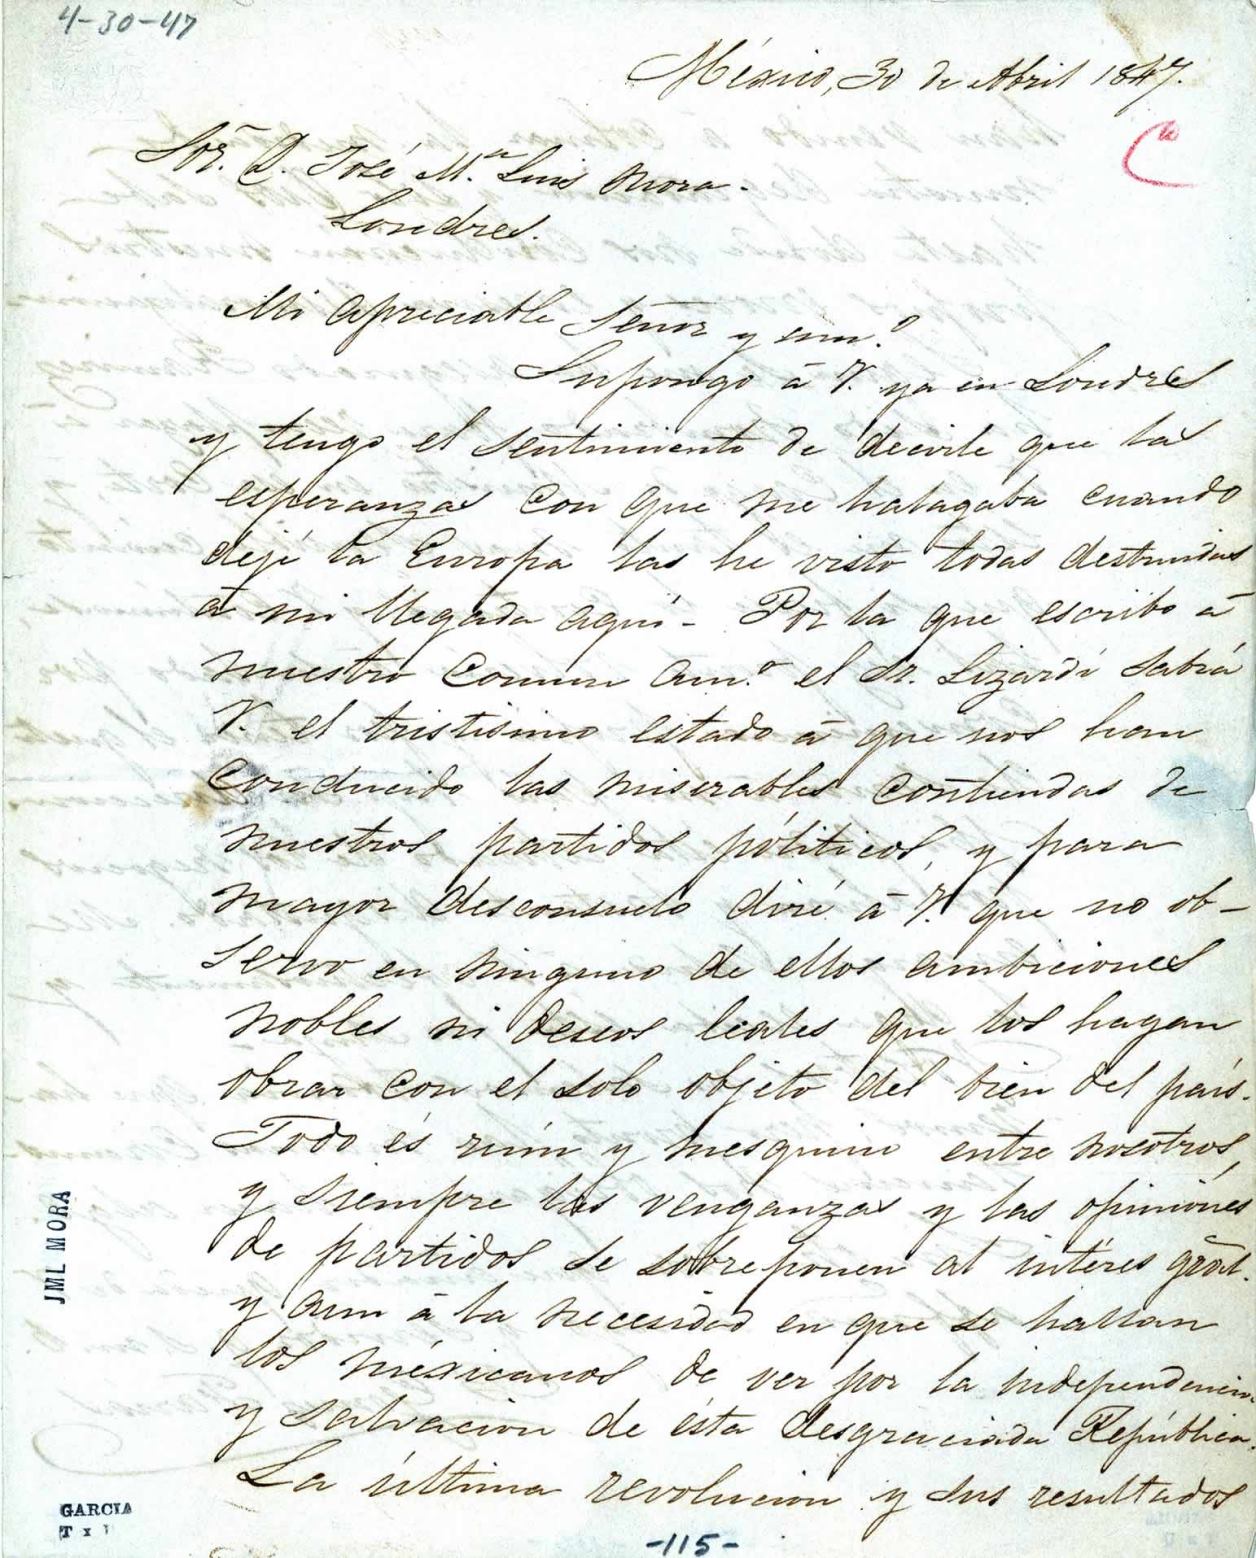 4-30-47
México, 30 de Abril 1847.
C
Sōr. D. José Mª. Luis Mora.
Londres.
Mi apreciable Señor y am.º
Supongo á V. ya en Londres
y tengo el sentimiento de decirle que las
esperanzas con que me halagaba cuando
dejé la Europa las he visto todas destruidas
á mi llegada aquí. Por la que escribo á
nuestro comun am.º el Sr. Lizardi sabrá
V. el tristisimo estado á que nos han
conducido las miserables contiendas de
nuestros partidos póliticos, y para
mayor desconsuelo diré á V. que no ob-
servo en ninguno de ellos ambiciones
nobles ni deseos leales que los hagan
obrar con el solo objeto del bien del país.
Todo és ruín y mesquino entre nosotros,
y siempre las venganzas y las opiniónes
de partidos se sobreponen al intéres grāl.
y aun á la necesidad en que se hallan
los méxicanos de ver por la independencia
y salvacion de ésta desgraciada República.
La última revolucion y sus resultados
JML MORA
GARCIA
-115-